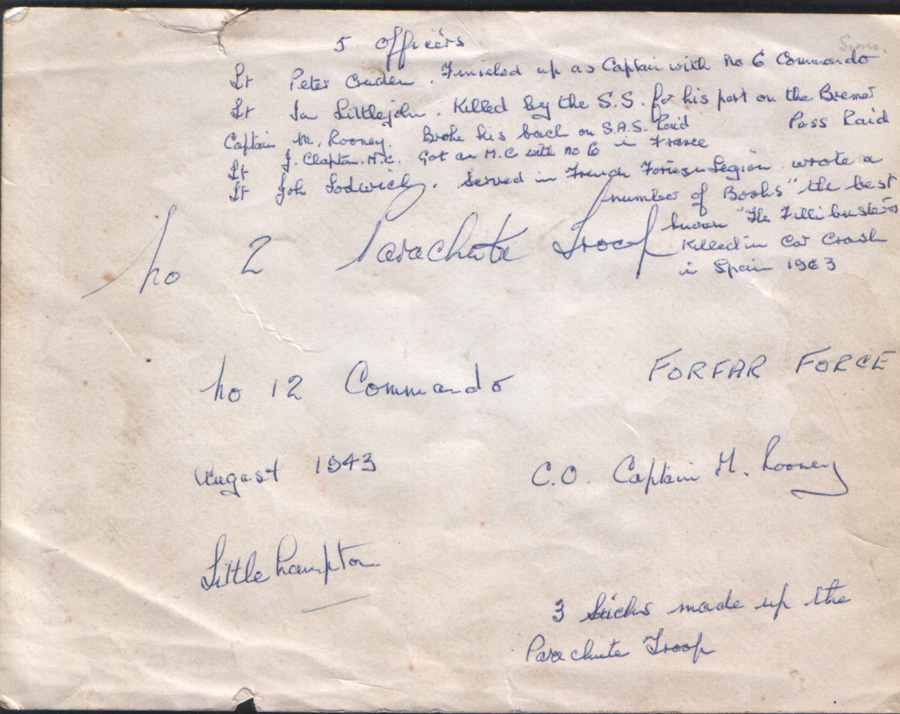 5 officers
Lt Peter . Finished up as Captain with No 6 Commando
Lt Ian Littlejohn. Killed by the S.S. for his part on the Bremer
Pass Raid
Captain M. Rooney. Broke his back on S.A.S. Raid
in France
Lt J. Clapton. M.C. Got an M.C with No 6
Lt John Lodwick. Served in French Foreign Legion wrote a
number of Books "the best
known "The Filli busters
Killed in Car Crash
in Spain 1963
No 2 Parachute Troop
No 12 Commando FORFAR FORCE
August 1943 C.O. Captain M. Rooney
Little hampton
3 Sticks made up the
Parachute Troop